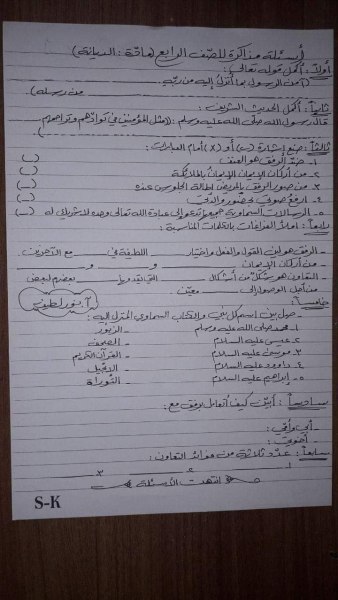 أسئلة مذاكرة للصف الرابع (مادة : الديانة)
أولاً: أكمل قوله تعالى:
(آمن الرسول بما أنزل إليه من ربه
من رسله)
ثانياً: أكمل الحديث الشريف:
قال رسول الله صلى الله عليه وسلم: ((مثل المؤمنين في توادهم وتراحمهم
ثالثاً: ضع إشارة (✓) أو (x) أمام العبارات:
١- ضد الرفق هو العنف ( )
٢- من أركان الإيمان الإيمان بالملائكة ( )
٣- من صور الرفق بالمريض إطالة الجلوس عنده ( )
٤- ارفع صوتي بحضور والدي ( )
٥- الرسالات السماوية جميعها تدعو إلى عبادة الله تعالى وحده لا شريك له ( )
رابعاً: املأ الفراغات بالكلمات المناسبة:
- الرفق هو لين القول والفعل واختيار اللطيفة في مع الآخرين
- من أركان الإيمان و و
- التعاون هو شكل من أشكال التي يقدمها بعضهم لبعض
من أجل الوصول إلى معين
خامساً:
صل بين اسم كل نبي والكتاب السماوي المنزل إليه:
١- محمد صلى الله عليه وسلم - الزبور
٢- عيسى عليه السلام - الصحف
٣- موسى عليه السلام - القرآن الكريم
٤- داوود عليه السلام - الإنجيل
٥- إبراهيم عليه السلام - التوراة
سادساً: أبين كيف أتعامل برفق مع:
- أبي وأمي:
- أخوتي:
سابعاً: عدد ثلاثة من فوائد التعاون:
١ ٢ ٣
انتهت الأسئلة
S-K